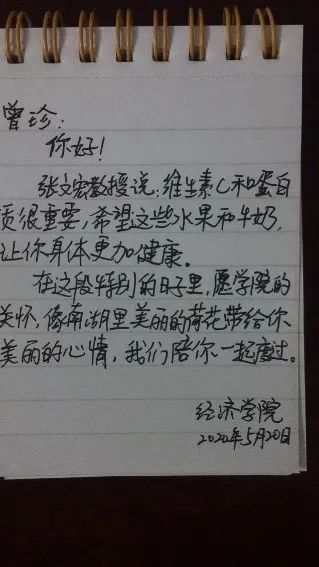 曾珍：
你好！
张文宏教授说：维生素C和蛋白
质很重要，希望这些水果和牛奶，
让你身体更加健康。
在这段特别的日子里，愿学院的
关怀，像南湖里美丽的荷花带给你
美丽的心情，我们陪你一起度过。
经济学院
2020年5月20日